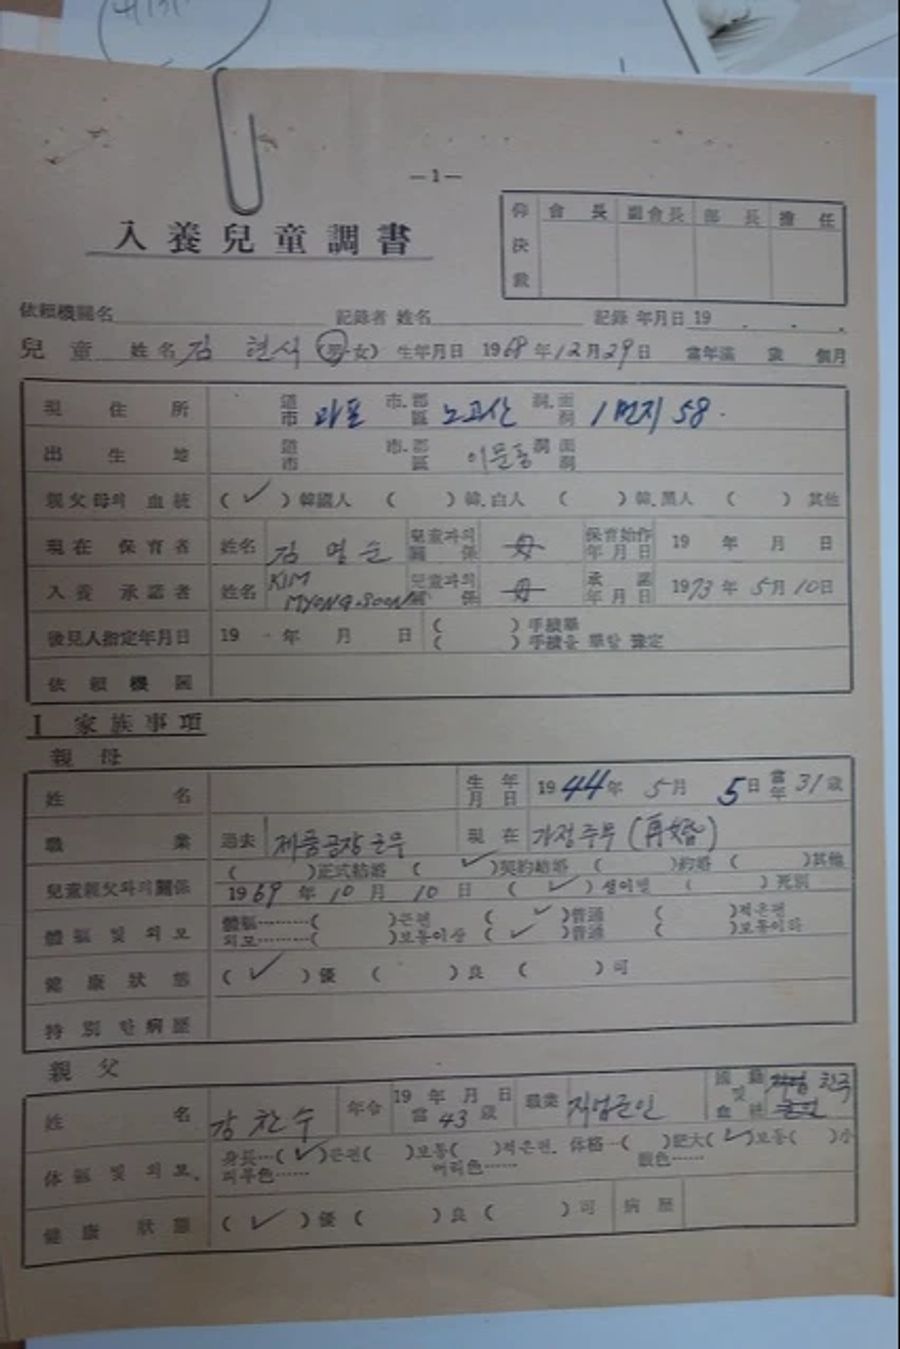 —1—
入養兒童調書
仰決裁 會長 副會長 部長 擔任
依賴機關名 記錄者 姓名 記錄 年月日 19 . . .
兒童 姓名 김 현식 (男·女) 生年月日 1968年 12月 29日 當年滿 歲 個月
現住所 道市 마포 市.郡區 노고산 洞.面洞 1번지 58.
出生地 道市 市.郡區 이문동 洞面洞
親父母의 血統 (✓) 韓國人 ( ) 韓.白人 ( ) 韓.黑人 ( ) 其他
現在 保育者 姓名 김 명순 兒童과의 關係 母 保育始作年月日 19 年 月 日
入養 承諾者 姓名 KIM MYONG-SOON 兒童과의 關係 母 承諾年月日 1973年 5月 10日
後見人指定年月日 19 年 月 日 ( ) 手續畢
( ) 手續을 畢할 豫定
依賴機關
I 家族事項
親母
姓名 生年月日 1944年 5月 5日 當年 31歲
職業 過去 제품공장 근무 現在 가정주부 (再婚)
兒童親父와의關係 ( )正式結婚 (✓)契約結婚 ( )約婚 ( )其他
1969年 10月 10日 (✓) 生이별 ( ) 死別
體軀 및 외모 體軀………( )큰편 (✓)普通 ( )적은편
외모………( )보통이상 (✓)普通 ( )보통이하
健康狀態 (✓)優 ( )良 ( )可
特別한病歷
親父
姓名 강찬수 年令 19 年 月 日 當 43歲 職業 직업군인 國籍 및 血統 한국
体軀 및 외모. 身長…(✓)큰편( )보통( )적은편. 体格…( )肥大(✓)보통( )小
피부色…… 머리色…… 眼色……
健康狀態 (✓)優 ( )良 ( )可 病歷